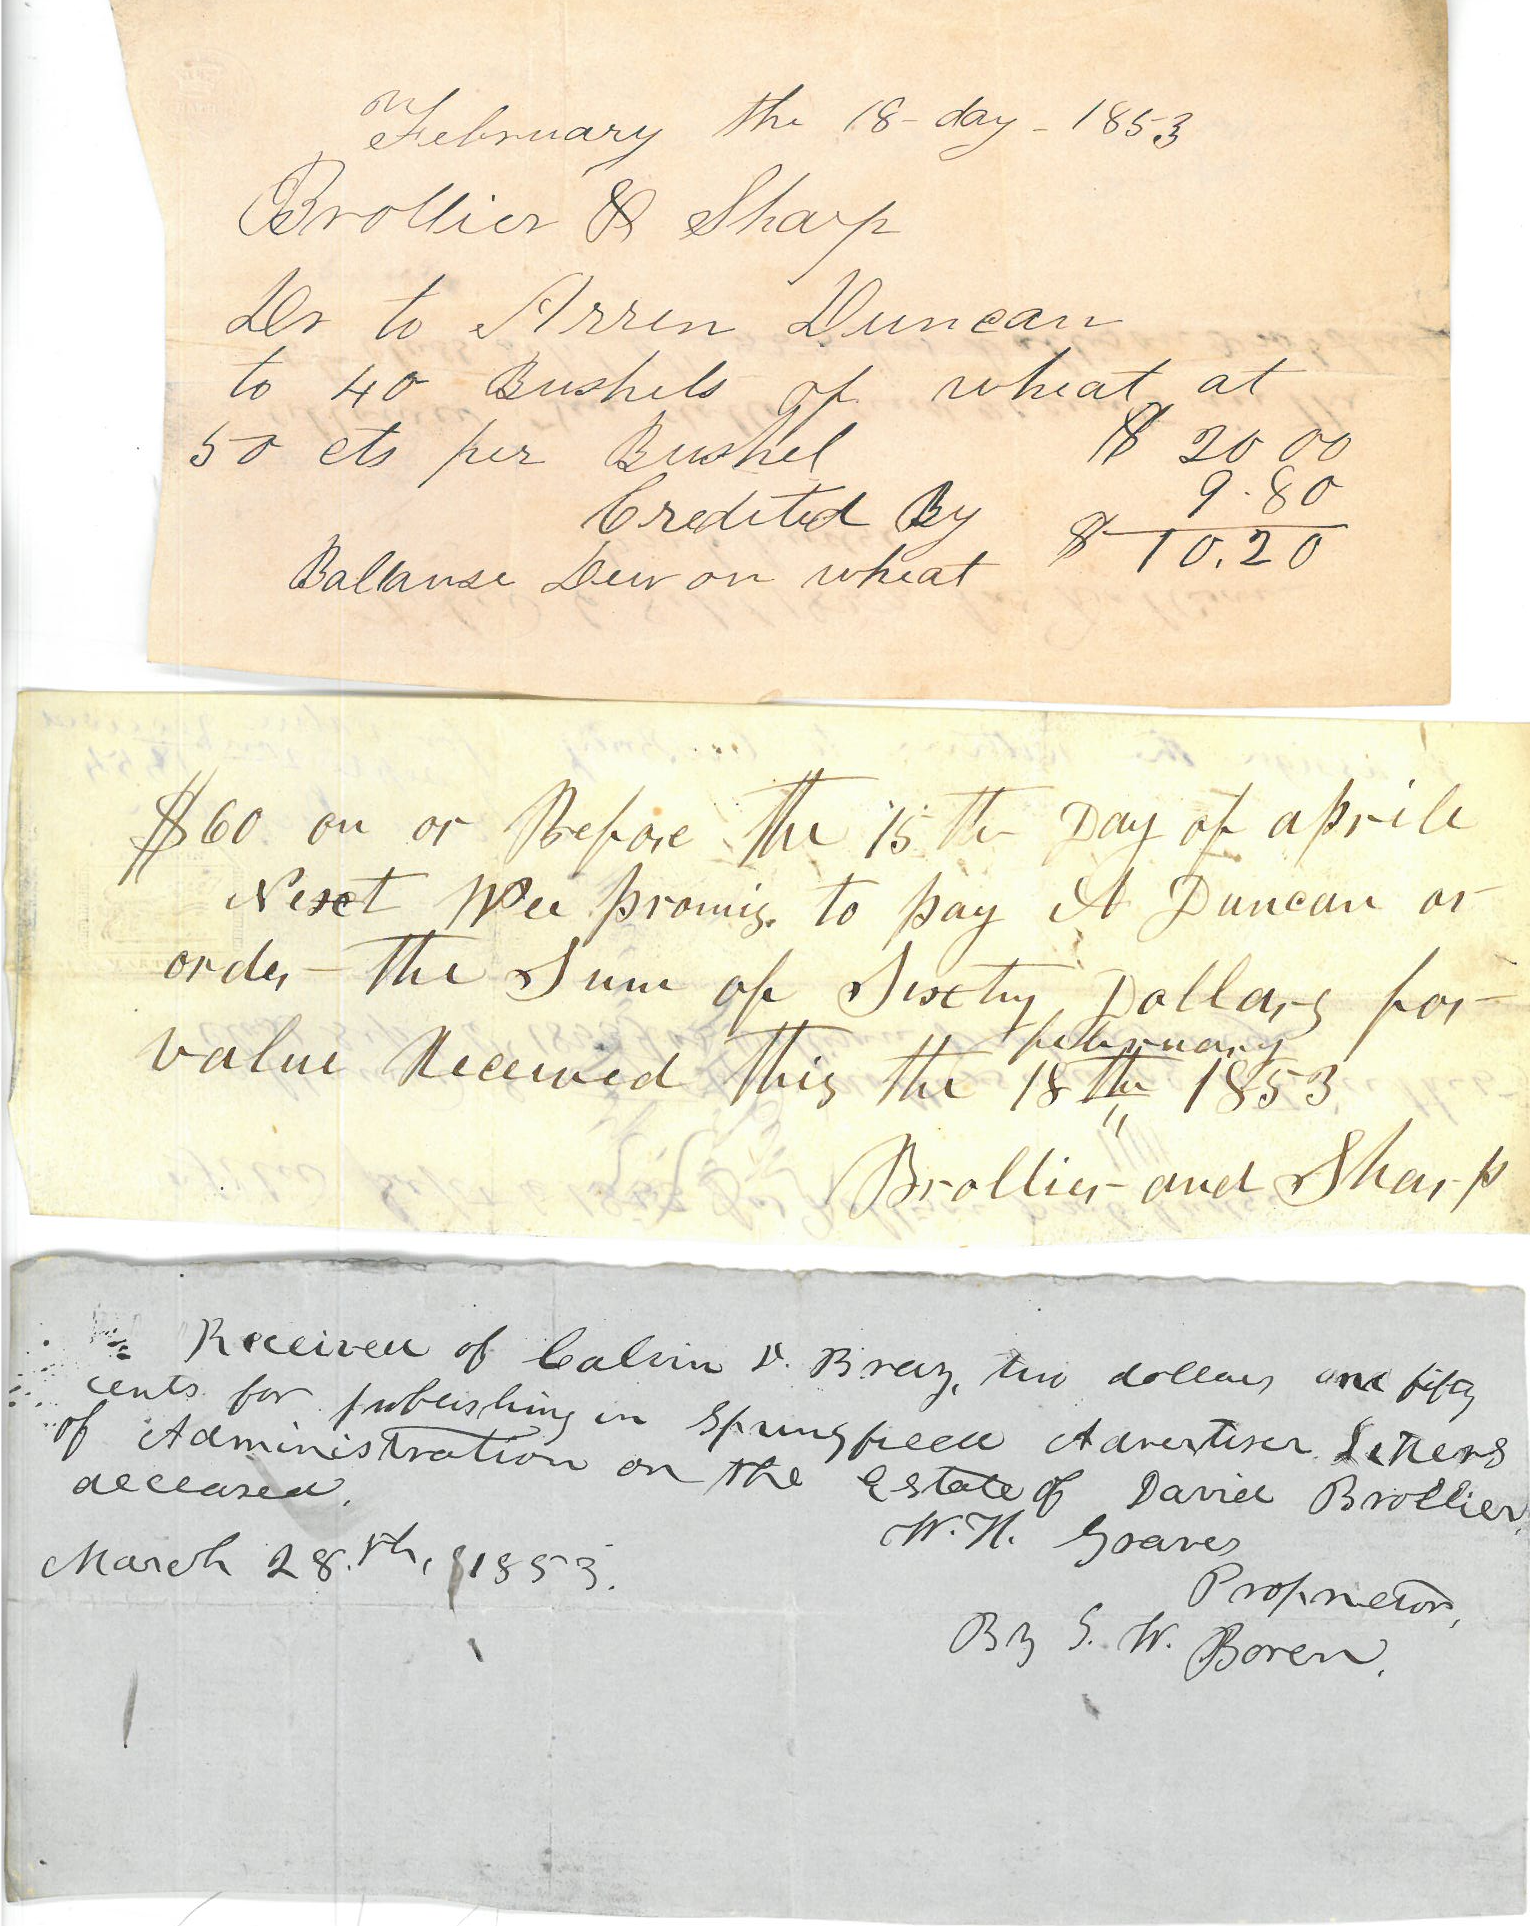 on
February the 18 - day - 1853
Brollier & Sharp
Dr to Arren Duncan
to 40 Bushels of wheat at
50 cts per Bushel $ 20 00
Credited By 9.80
Ballanse Dew on wheat $ 10.20
$60 on or Before the 15th Day of aprile
Nexct Wee promis to pay A Duncan or
order the Sum of Sixcty Dollars for
february
value Received this the 18th 1853
Brollier and Sharp
Received of Calvin D. Bray, two dollars and fifty
cents for publishing in Springfield Advertiser Letters
of Administration on the Estate of David Brollier,
deceased.
W. H. Graves
March 28.th, 1853.
Proprietor,
By G. W. Boren.